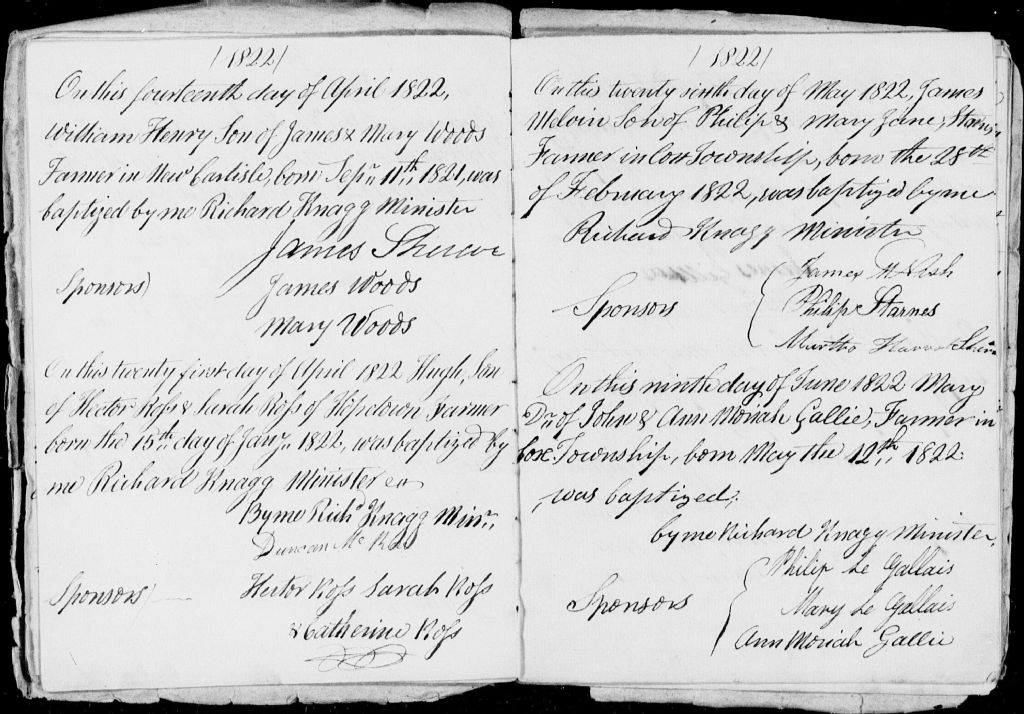 (1822)
On this fourteenth day of April 1822,
William Henry Son of James & Mary Woods
Farmer in New Carlisle, born Sepr. 11th, 1821, was
baptized by me Richard Knagg Minister
James
Sponsors) James Woods
Mary Woods
On this twenty first day of April 1822 Hugh, Son
of Hector Ross & Sarah Ross of Hopetown Farmer
born the 15th day of Jany. 1822, was baptized by
me Richard Knagg Minister
By me Richd Knagg Minr.
Duncan Mc
Sponsors) Hector Ross Sarah Ross
& Catherine Ross
(1822)
On this twenty ninth day of May 1822, James
Melvin Son of Philip & Mary Jane,
Farmer in Cox Township, born the 28th
of February 1822, was baptized by me
Richard Knagg Minister
James
Sponsors Philip Starnes
Murtho
On this ninth day of June 1822 Mary
Dr. of John & Ann Moriah Gallie, Farmer in
Cox Township, born May the 12th, 1822
was baptized;
by me Richard Knagg Minister,
Philip Le Gallais
Sponsors Mary Le Gallais
Ann Moriah Gallie